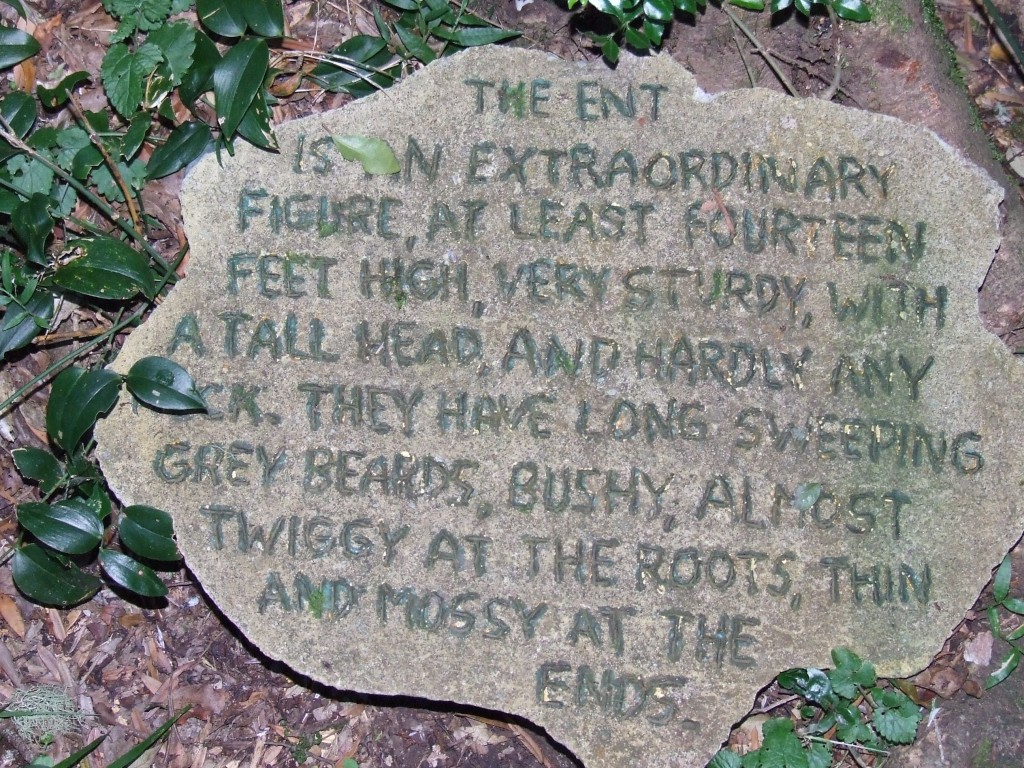 THE ENT
IS AN EXTRAORDINARY
FIGURE, AT LEAST FOURTEEN
FEET HIGH, VERY STURDY, WITH
A TALL HEAD, AND HARDLY ANY
NECK. THEY HAVE LONG SWEEPING
GREY BEARDS, BUSHY, ALMOST
TWIGGY AT THE ROOTS, THIN
AND MOSSY AT THE
ENDS.